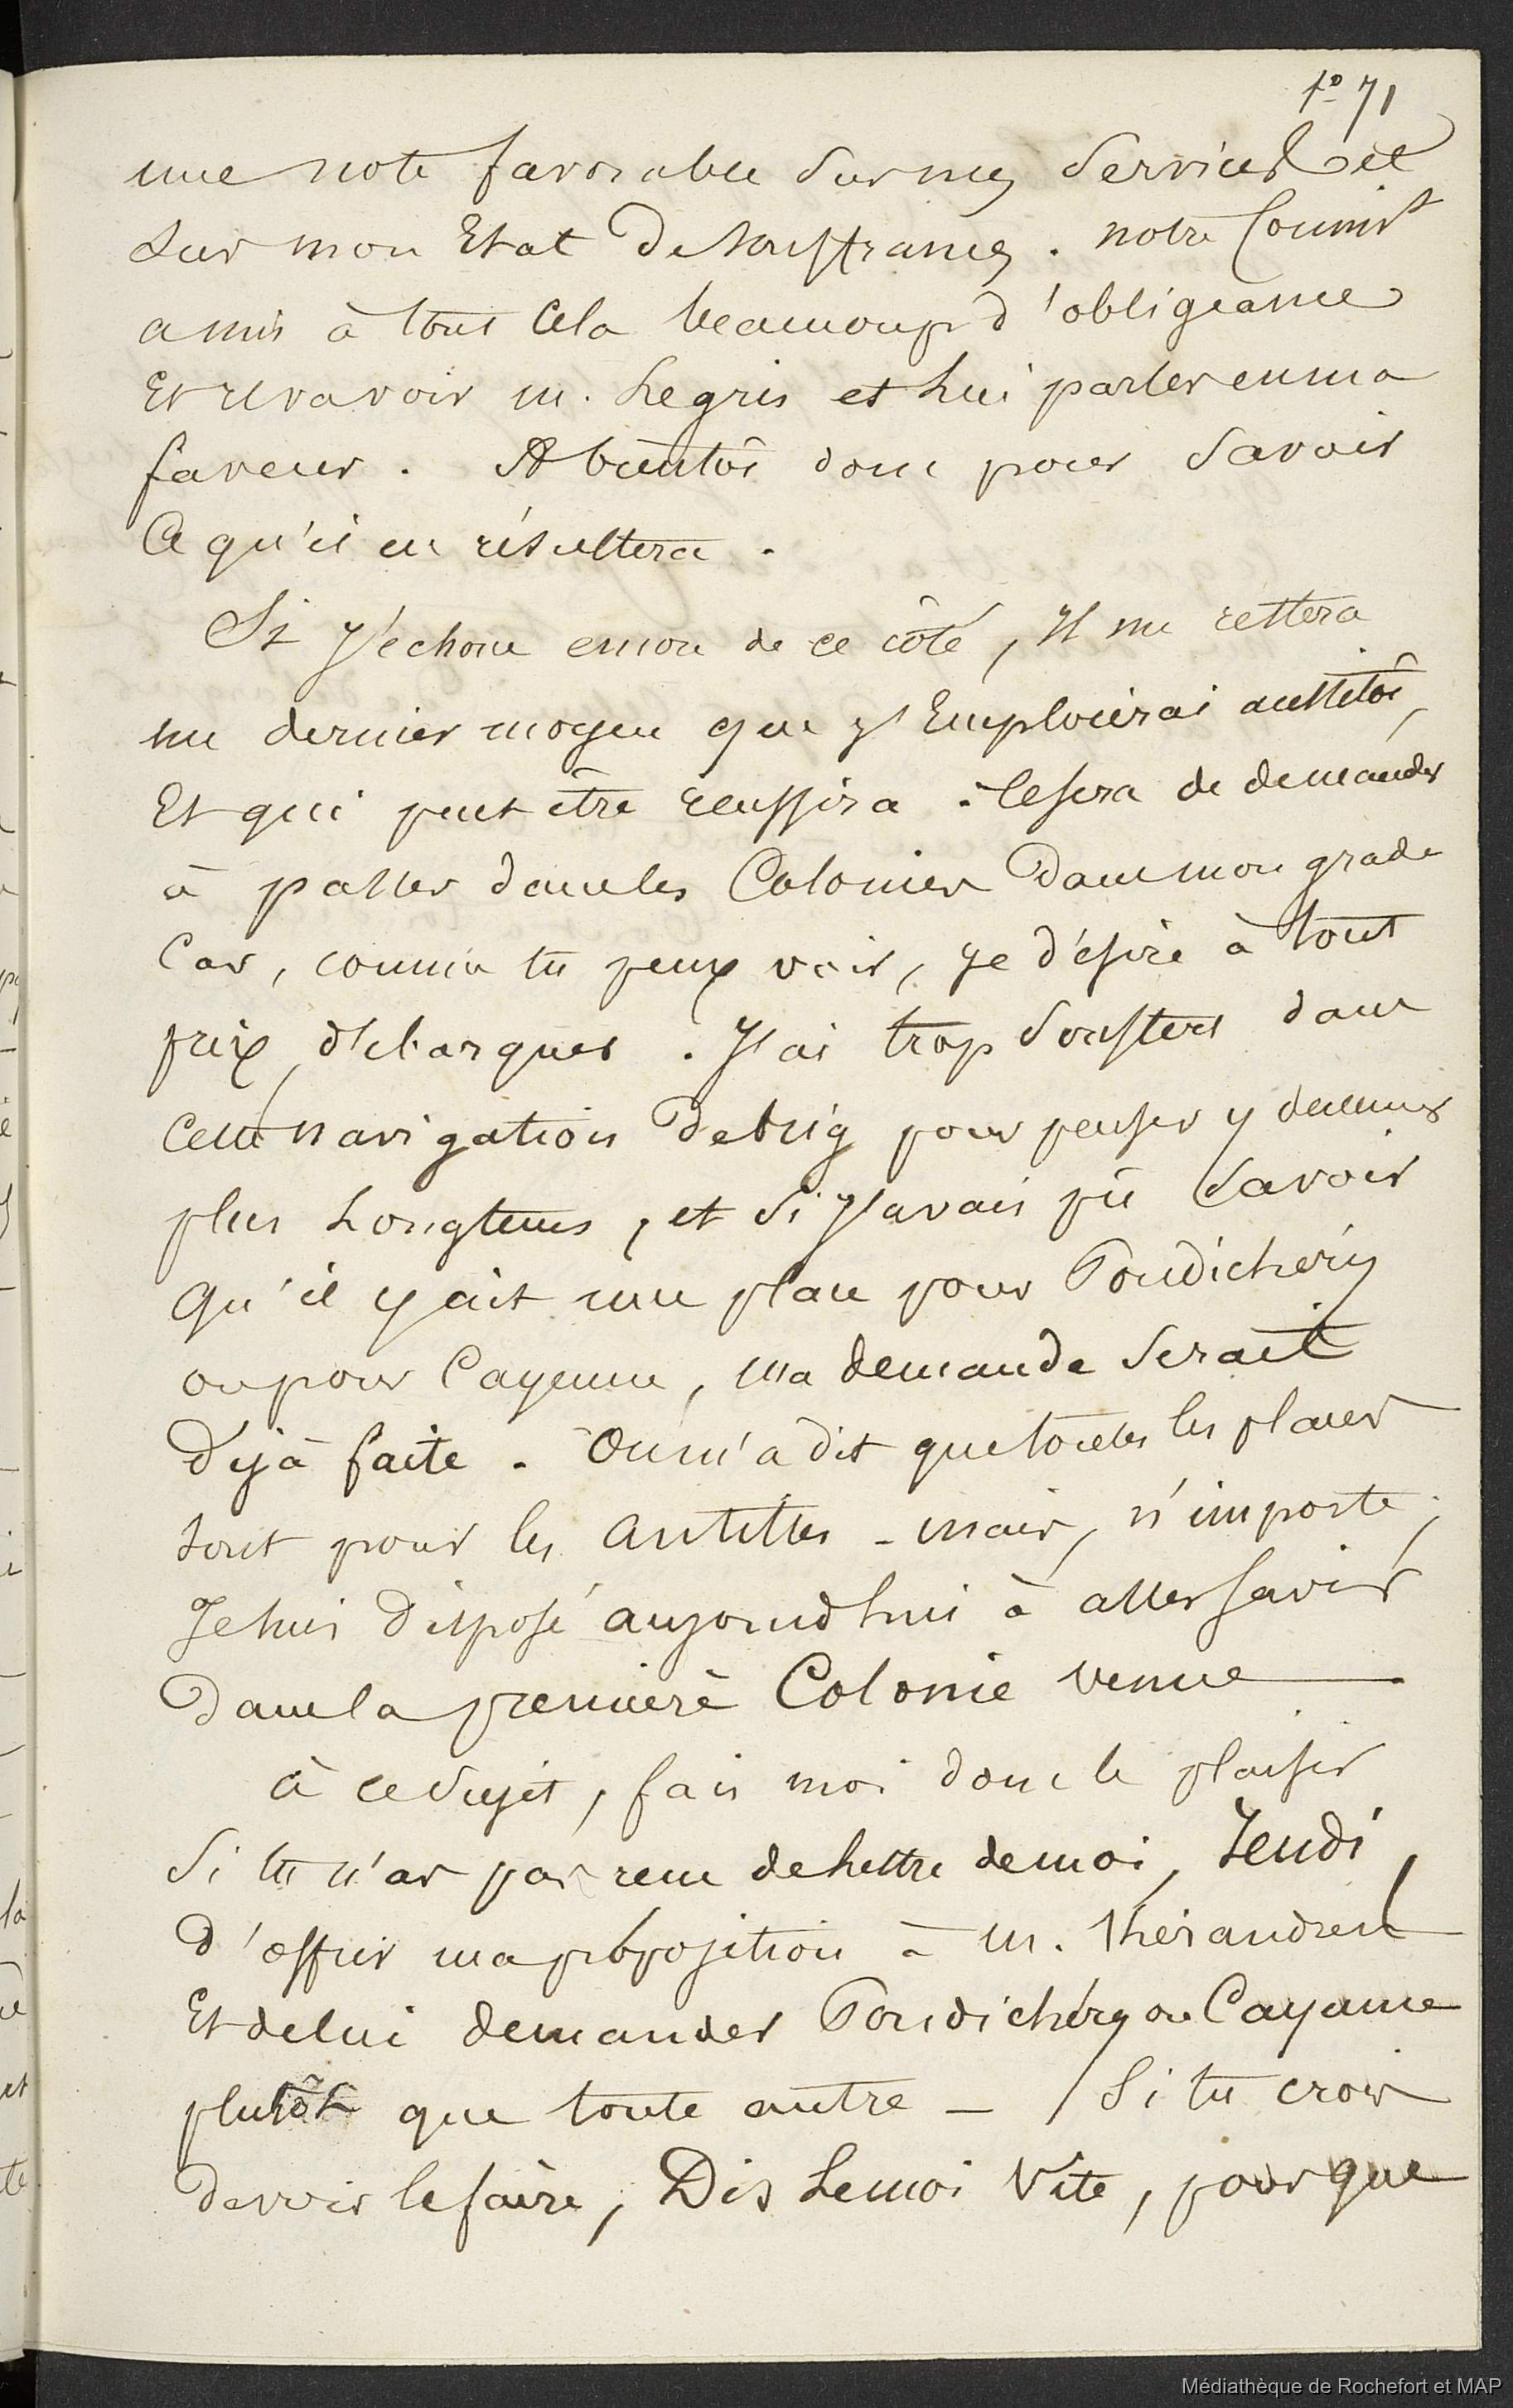 fo 71
une note favorable sur mes services et
sur mon Etat de souffrances. notre Commist
a mis à tout cela beaucoup d'obligeance
Et il va voir m. Legris et lui parler en ma
faveur. A bientôt donc pour savoir
Ce qu'il en résultera.
Si j'echoue encore de ce côté, Il me restera
un dernier moyen que j'Emploierai aussitôt,
Et qui peut être réussira. Ce sera de demander
à passer dans les Colonies dans mon grade
Car, comme tu peux voir, je désire à tout
prix débarquer. J'ai trop souffert dans
cette navigation de brig pour penser y demeurer
plus longtems, et si j'avais pû savoir
qu'il y ait une place pour Pondichéry
ou pour Cayenne, ma demande serait
déjà faite. On m'a dit que toutes les places
sont pour les antilles - mais, n'importe,
Je suis disposé aujourd'hui à aller servir
dans la premiere Colonie venue
à ce sujet, fais moi donc le plaisir
si tu n'as pas recu de lettre de moi, Jeudi,
d'offrir ma proposition à m.
Et de lui demander Pondichéry ou Cayenne
plutôt que toute autre - / Si tu crois
devoir le faire, Dis le moi Vite, pour que
Médiathèque de Rochefort et MAP